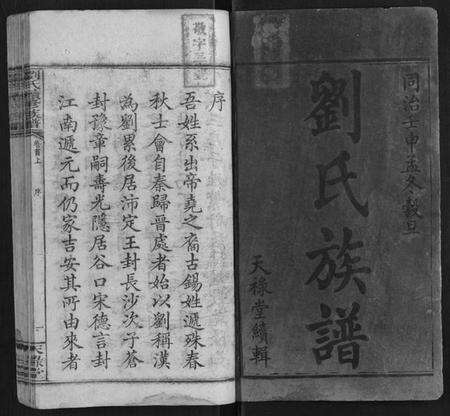 同治壬申孟冬穀旦
劉氏族譜
天祿堂續輯
序
吾姓系出帝堯之裔古錫姓遞殊春
秋士會自秦歸晉處者始以劉稱漢
為劉累後居沛定王封長沙次子蒼
封豫章嗣壽光隱居谷口宋德言封
江南遞元而仍家吉安其所由來者
卷首上
序